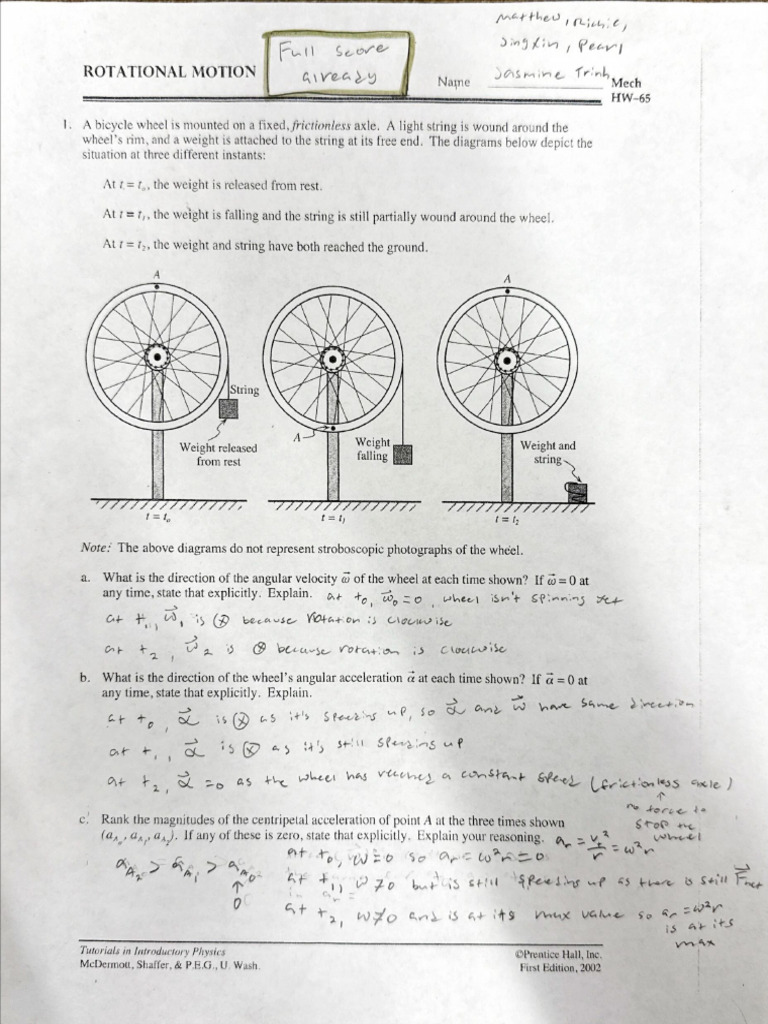 Matthew, Richie,
Jingxin, Pearl
Full score
already
ROTATIONAL MOTION
Name Jasmine Trinh
Mech
HW-65
1. A bicycle wheel is mounted on a fixed, frictionless axle. A light string is wound around the
wheel's rim, and a weight is attached to the string at its free end. The diagrams below depict the
situation at three different instants:
At t = t₀, the weight is released from rest.
At t = t₁, the weight is falling and the string is still partially wound around the wheel.
At t = t₂, the weight and string have both reached the ground.
A
A
String
Weight released
from rest
A
Weight
falling
Weight and
string
t = t₀
t = t₁
t = t₂
Note: The above diagrams do not represent stroboscopic photographs of the wheel.
a. What is the direction of the angular velocity ω⃗ of the wheel at each time shown? If ω⃗ = 0 at
any time, state that explicitly. Explain. at t₀, ω⃗₀ = 0, wheel isn't spinning yet
at t₁, ω⃗₁ is ⊗ because rotation is clockwise
at t₂, ω⃗₂ is ⊗ because rotation is clockwise
b. What is the direction of the wheel's angular acceleration α⃗ at each time shown? If α⃗ = 0 at
any time, state that explicitly. Explain.
at t₀, α⃗ is ⊗ as it's speeding up, so α⃗ and ω⃗ have same direction
at t₁, α⃗ is ⊗ as it's still speeding up
at t₂, α⃗ = 0 as the wheel has reached a constant speed (frictionless axle)
↑
no force to
stop the
wheel
c. Rank the magnitudes of the centripetal acceleration of point A at the three times shown
(a_A₀, a_A₁, a_A₂). If any of these is zero, state that explicitly. Explain your reasoning. aᵣ = v²/r = ω²r
a_A₂ > a_A₁ > a_A₀
↑
0
at t₀, ω = 0 so aᵣ = ω²r = 0
at t₁, ω ≠ 0 but is still speeding up as there is still F⃗net
aᵣ =
at t₂, ω ≠ 0 and is at its max value so aᵣ = ω²r
is at its
max
Tutorials in Introductory Physics
McDermott, Shaffer, & P.E.G., U. Wash.
©Prentice Hall, Inc.
First Edition, 2002